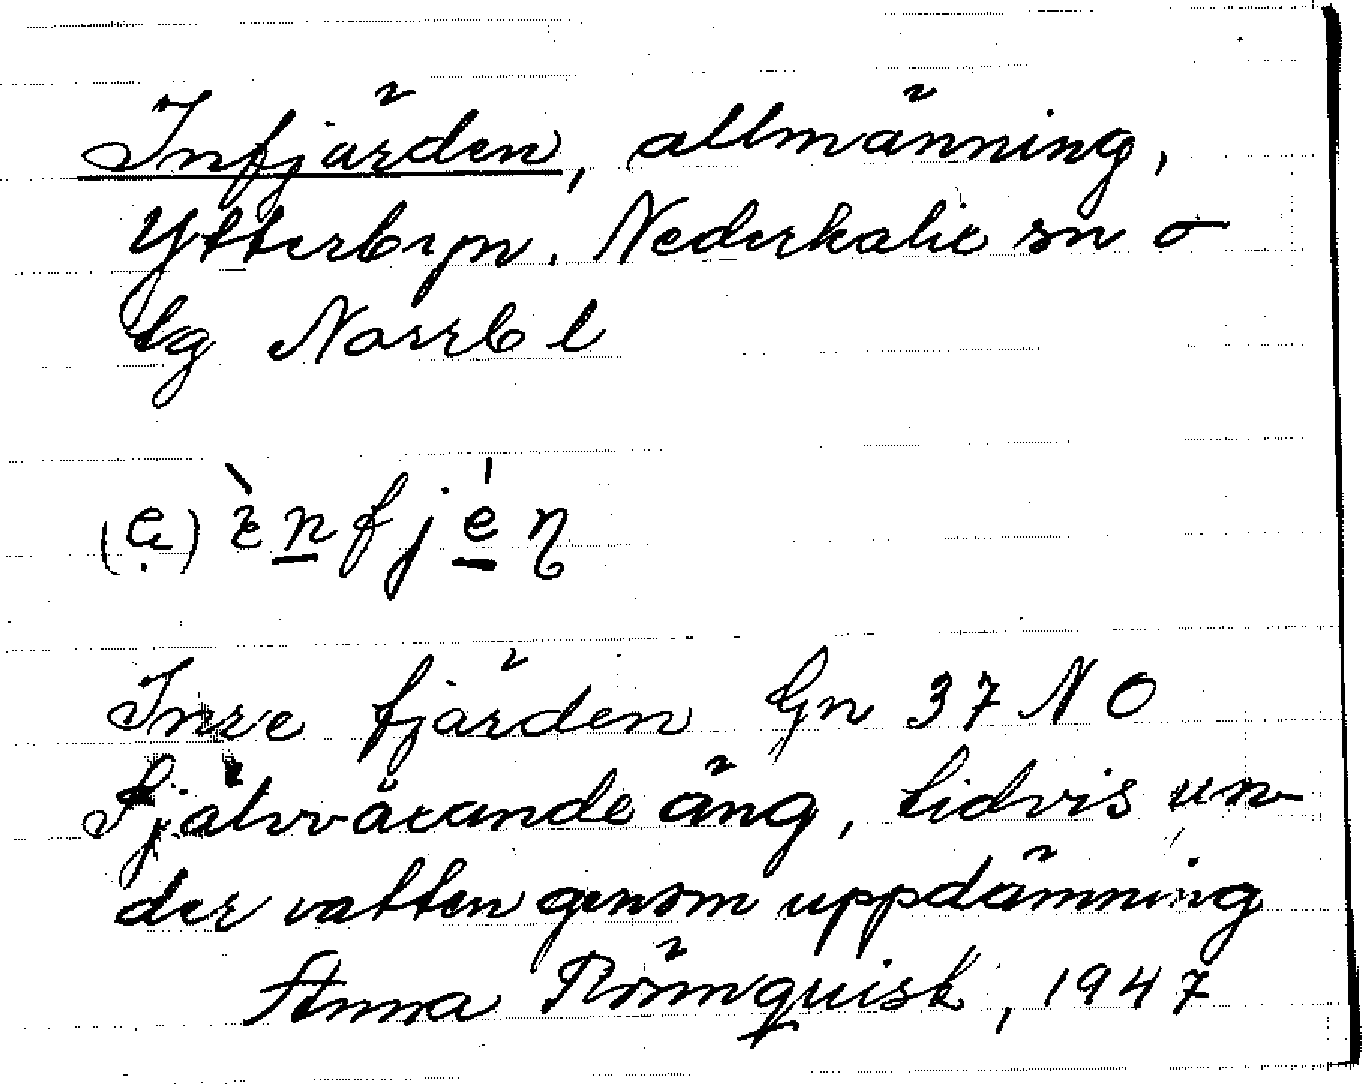 Infjärden, allmänning,
Ytterbyn. Nederkalix sn o
tg Norrb l
(e) ènfjén
Inre fjärden Gn 37 NO
Självvärande äng, tidvis un-
der vatten genom uppdämning
Anna Rönnquist, 1947